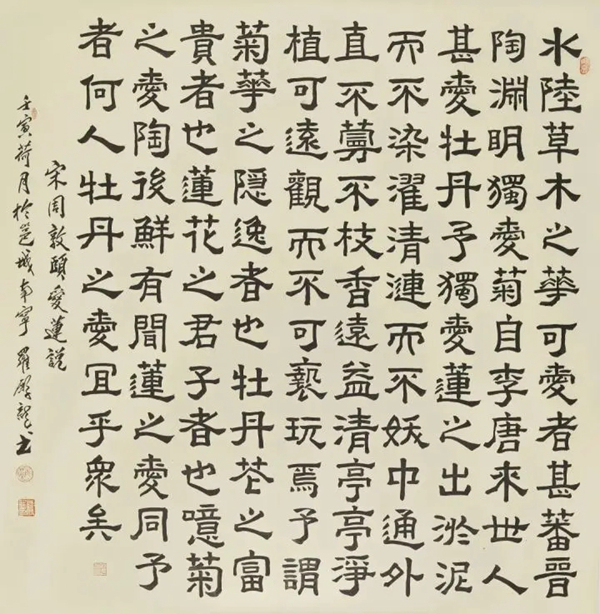 水陸草木之華可愛者甚蕃晉
陶淵明獨愛菊自李唐来世人
甚愛牡丹予獨愛蓮之出淤泥
而不染濯清漣而不妖中通外
直不蔓不枝香遠益清亭亭淨
植可遠觀而不可褻玩焉予謂
菊華之隱逸者也牡丹花之富
貴者也蓮花之君子者也噫菊
之愛陶後鮮有聞蓮之愛同予
者何人牡丹之愛宜乎衆矣
宋周敦頤愛蓮說
壬寅荷月於邕城南寧羅書